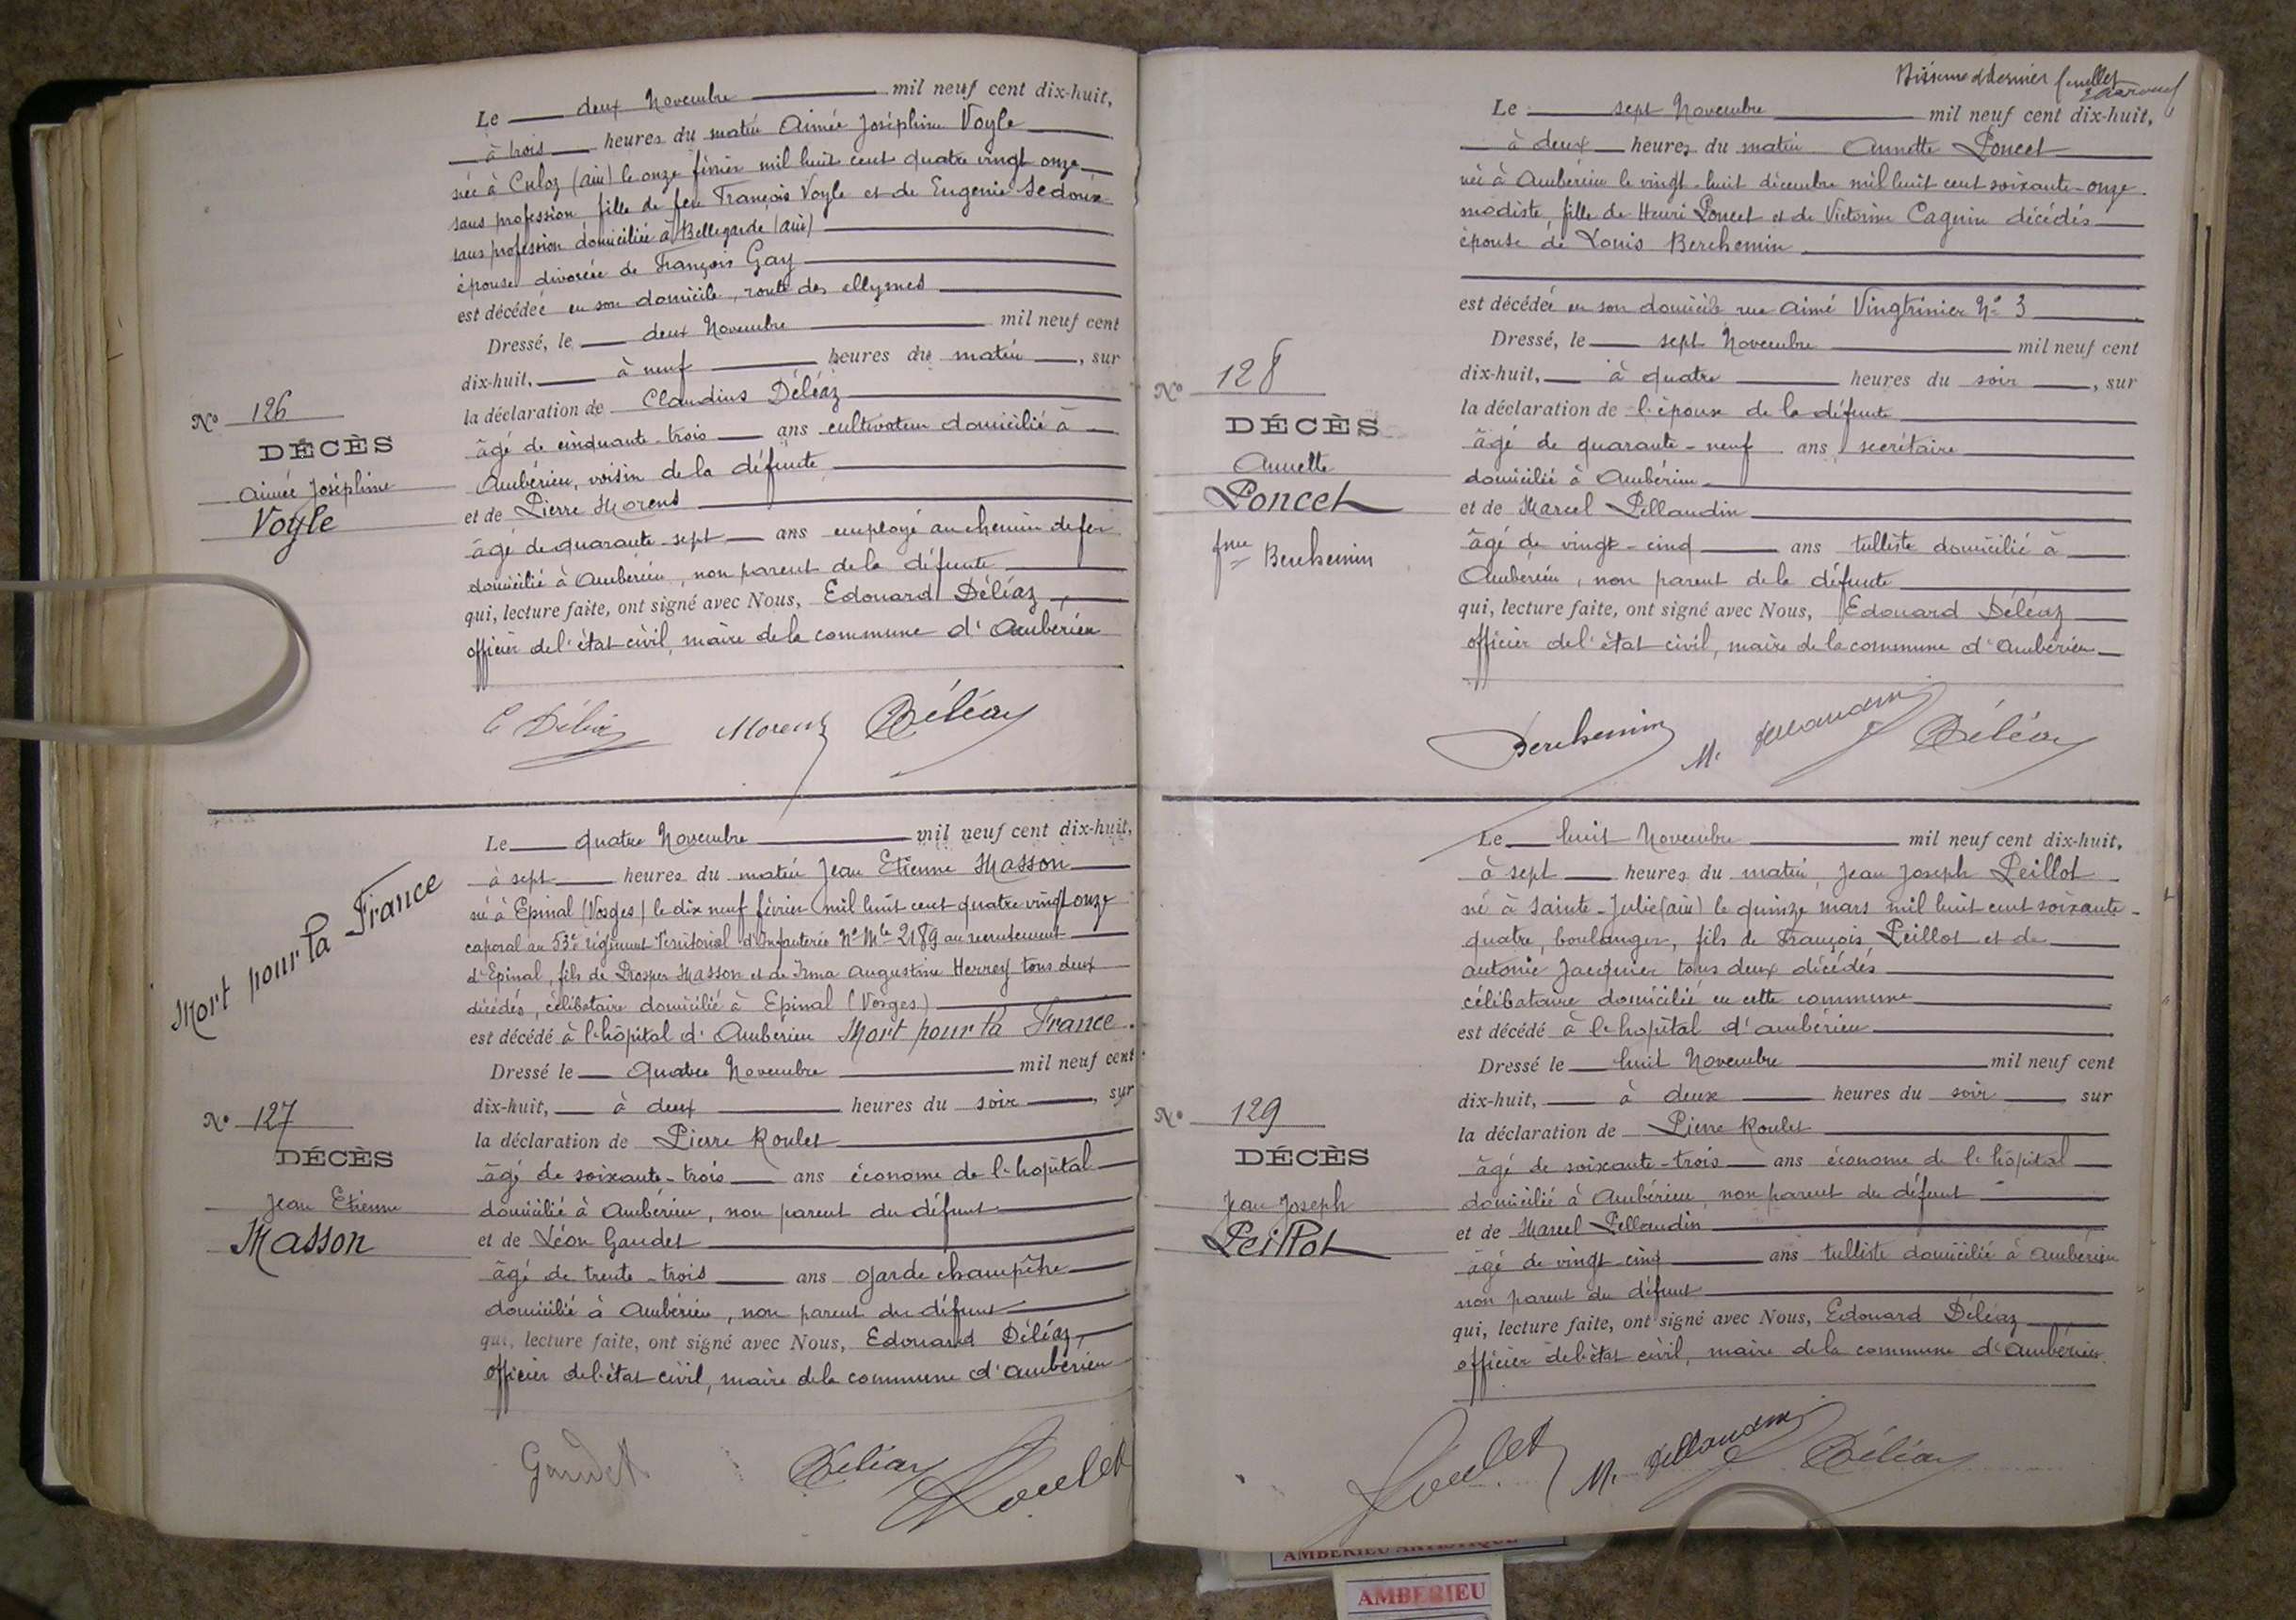 Le deux Novembre mil neuf cent dix-huit,
à trois heures du matin Aimée Joséphine Voyle
née à Culoz (Ain) le onze février mil huit cent quatre vingt onze
sans profession, fille de feu François Voyle et de Eugenie Sedoux
sans profession domiciliée à Bellegarde (Ain)
épouse divorcée de François Gay
est décédée en son domicile, route des Allymes
Dressé, le deux Novembre mil neuf cent
dix-huit, à neuf heures du matin, sur
la déclaration de Claudius Déléaz
âgé de cinquante-trois ans cultivateur domicilié à
Ambérieu, voisin de la défunte
et de Pierre Morens
âgé de quarante-sept ans employé au chemin de fer
domicilié à Ambérieu, non parent de la défunte
qui, lecture faite, ont signé avec Nous, Edouard Déléaz,
officier de l'état civil, maire de la commune d'Ambérieu
Nº 126
DÉCÈS
Aimée Joséphine
Voyle
Déléaz
Le quatre Novembre mil neuf cent dix-huit,
à sept heures du matin Jean Etienne Masson
né à Epinal (Vosges) le dix neuf février mil huit cent quatre vingt onze
caporal au 53e régiment Territorial d'Infanterie Nº Mle 2189 au recrutement
d'Epinal, fils de Prosper Masson et de Irma Augustine Herrey tous deux
décédés, célibataire domicilié à Epinal (Vosges)
est décédé à l'hôpital d'Ambérieu Mort pour la France.
Dressé le quatre Novembre mil neuf cent
dix-huit, à deux heures du soir, sur
la déclaration de Pierre Roulet
âgé de soixante-trois ans économe de l'hopital
domicilié à Ambérieu, non parent du défunt
et de Léon Gaudet
âgé de trente-trois ans garde champêtre
domicilié à Ambérieu, non parent du défunt
qui, lecture faite, ont signé avec Nous, Edouard Déléaz,
officier de l'état civil, maire de la commune d'Ambérieu
Mort pour la France
Nº 127
DÉCÈS
Jean Etienne
Masson
Gaudet Déléaz Roulet
dernier feuillet
Le sept Novembre mil neuf cent dix-huit,
à deux heures du matin Annette Poncet
née à Ambérieu le vingt-huit décembre mil huit cent soixante-onze
modiste, fille de Henri Poncet et de Victorine Cagnin décédés
épouse de Louis Berchemin
est décédée en son domicile rue Aimé Vingtrinier Nº 3
Dressé, le sept Novembre mil neuf cent
dix-huit, à quatre heures du soir, sur
la déclaration de l'époux de la défunte
âgé de quarante-neuf ans, secrétaire
domicilié à Ambérieu
et de Marcel Pellaudin
âgé de vingt-cinq ans tulliste domicilié à
Ambérieu, non parent de la défunte
qui, lecture faite, ont signé avec Nous, Edouard Déléaz
officier de l'état civil, maire de la commune d'Ambérieu
Nº 128
DÉCÈS
Annette
Poncet
fme Berchemin
Berchemin M. Pellaudin Déléaz
Le huit Novembre mil neuf cent dix-huit,
à sept heures du matin, Jean Joseph Peillot
né à Sainte-Julie (Ain) le quinze mars mil huit cent soixante-
quatre, boulanger, fils de François Peillot et de
Antonie Jacquier tous deux décédés
célibataire domicilié en cette commune
est décédé à l'hopital d'Ambérieu
Dressé le huit Novembre mil neuf cent
dix-huit, à deux heures du soir sur
la déclaration de Pierre Roulet
âgé de soixante-trois ans économe de l'hôpital
domicilié à Ambérieu, non parent du défunt
et de Marcel Pellaudin
âgé de vingt-cinq ans tulliste domicilié à Ambérieu
non parent du défunt
qui, lecture faite, ont signé avec Nous, Edouard Déléaz
officier de l'état civil, maire de la commune d'Ambérieu
Nº 129
DÉCÈS
Jean Joseph
Peillot
Roulet M. Pellaudin Déléaz
AMBERIEU ARTISTIQUE
AMBERIEU